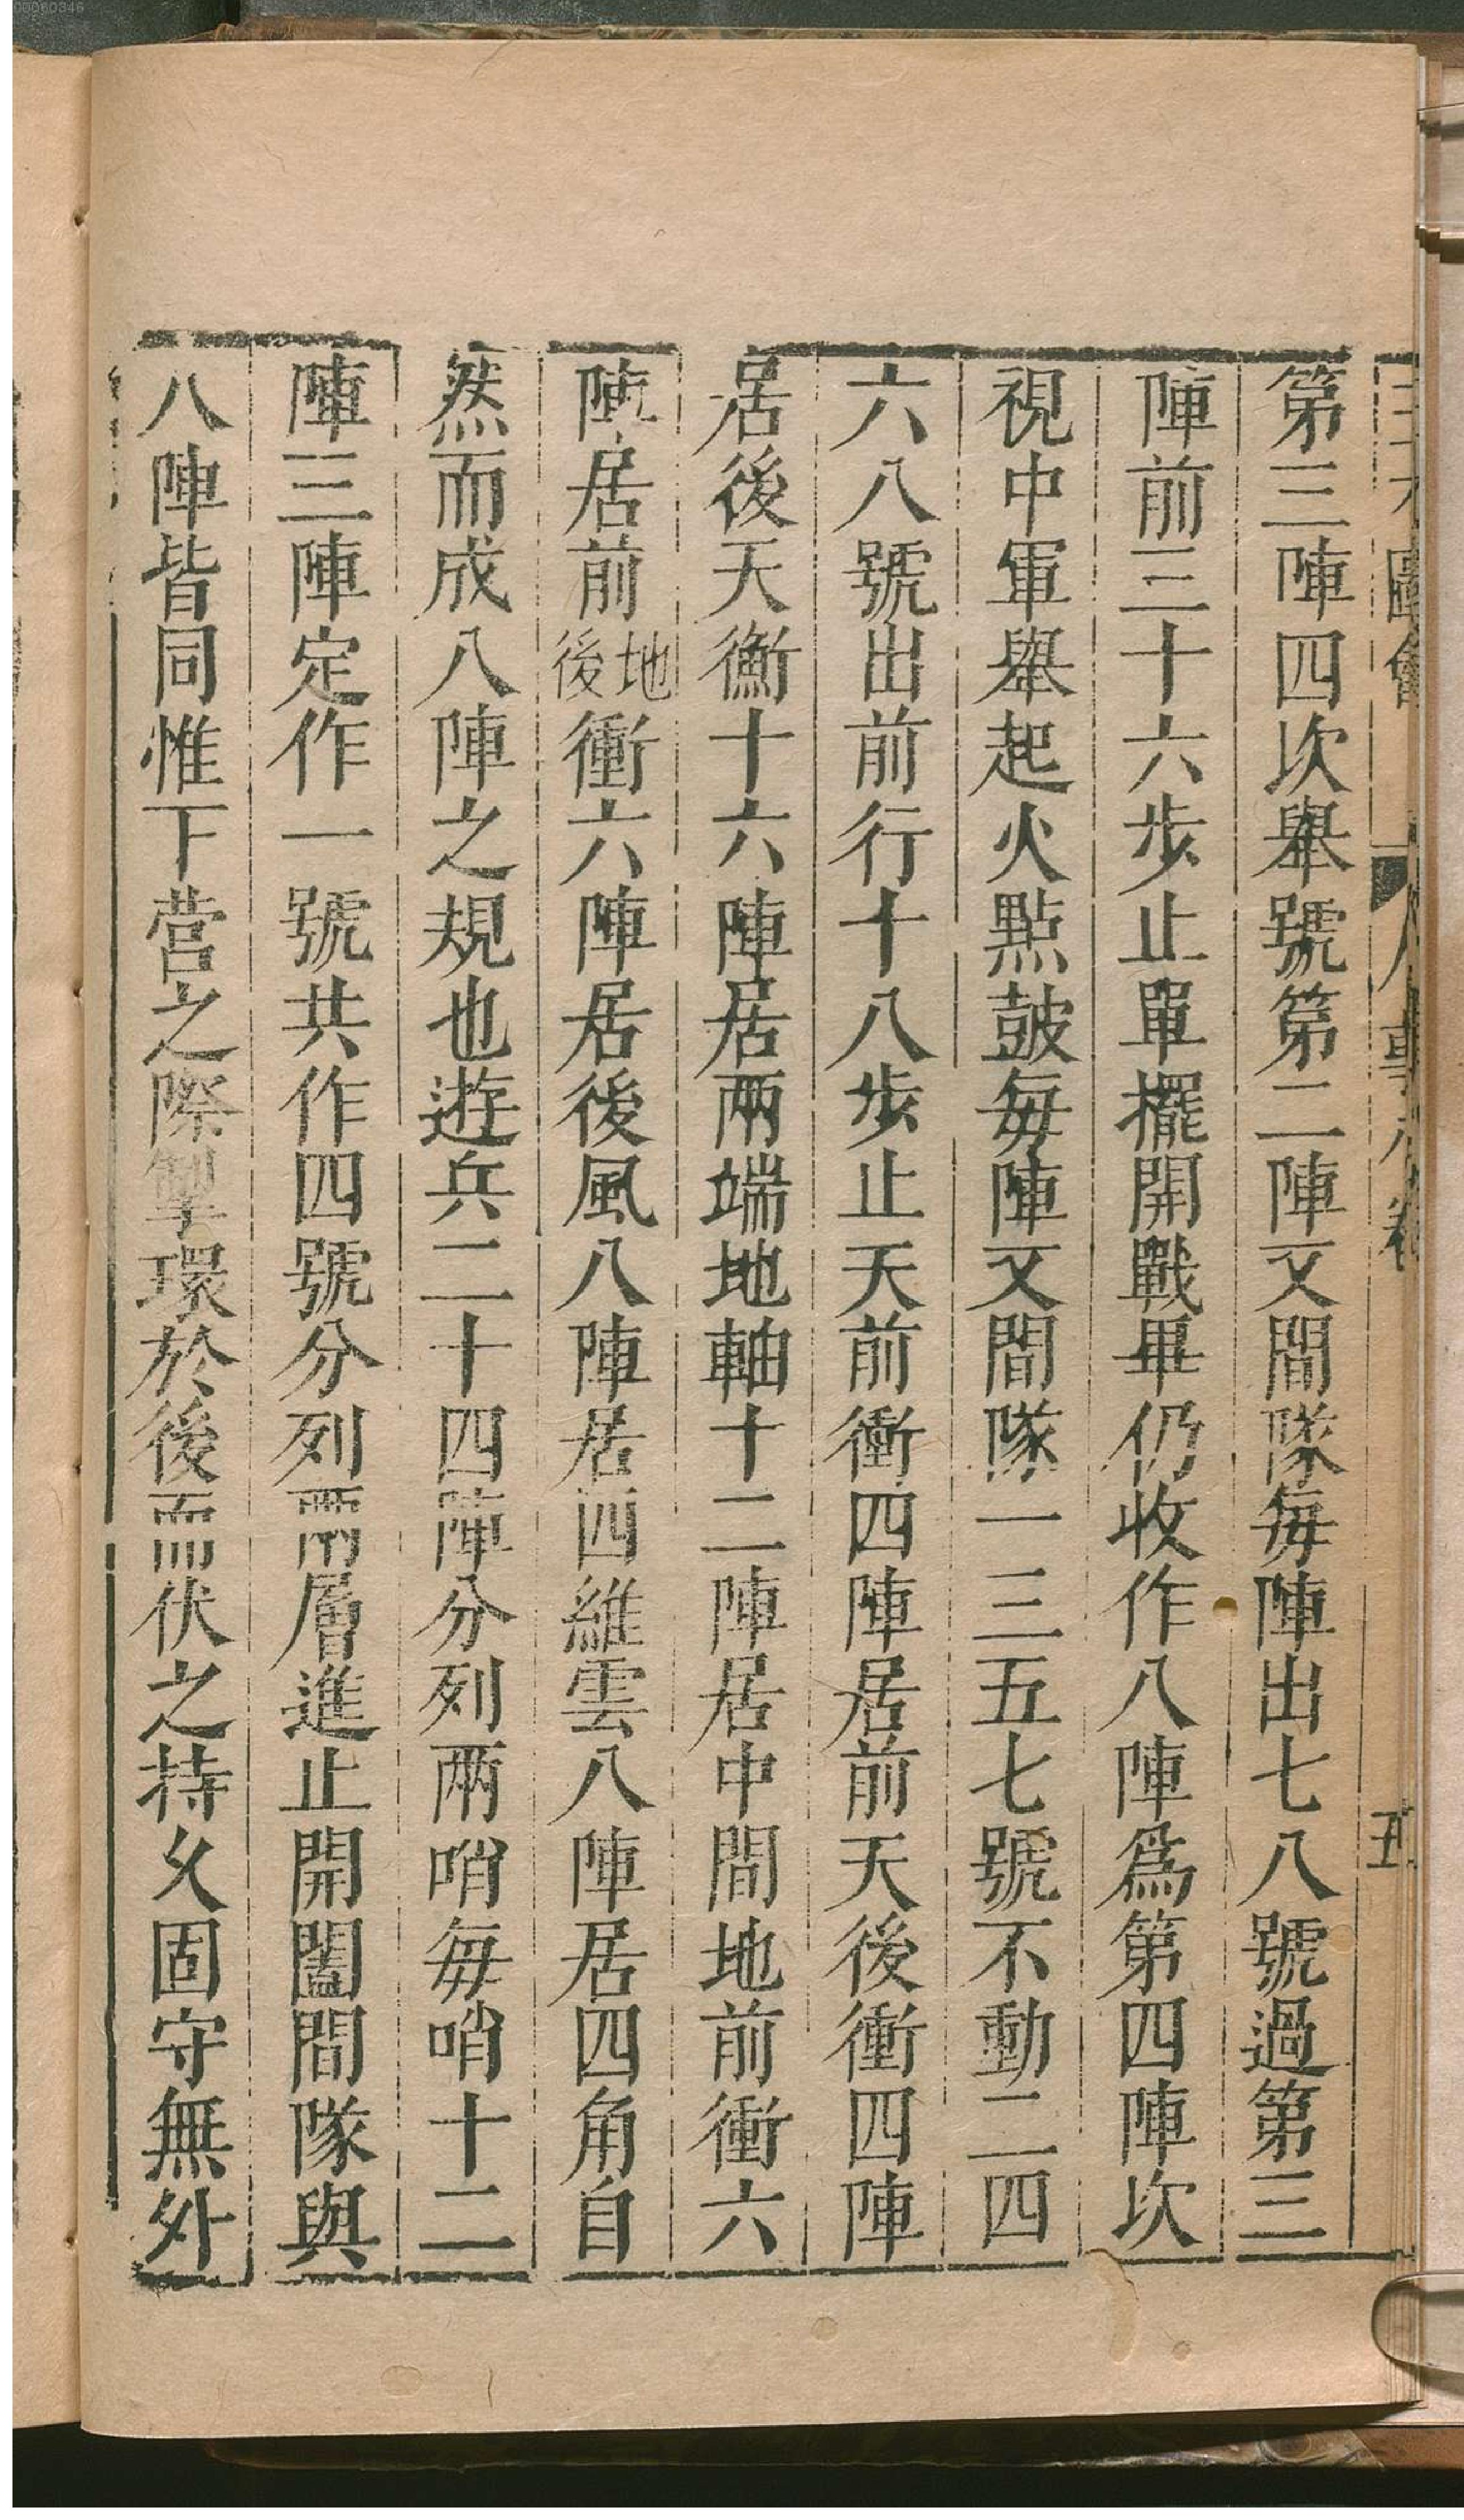 三才圖會 人事八卷 五
第三陣四次舉號第二陣又間隊每陣出七八號過第三
陣前三十六步止單擺開戰畢仍收作八陣爲第四陣次
視中軍舉起火點鼓每陣又間隊一三五七號不動二四
六八號出前行十八步止天前衝四陣居前天後衝四陣
居後天衡十六陣居兩端地軸十二陣居中間地前衝六
陣居前地後衝六陣居後風八陣居四維雲八陣居四角自
然而成八陣之規也遊兵二十四陣分列兩哨每哨十二
陣三陣定作一號共作四號分列兩層進止開闔間隊與
八陣皆同惟下營之際掣環於後而伏之持久固守無外
00060346